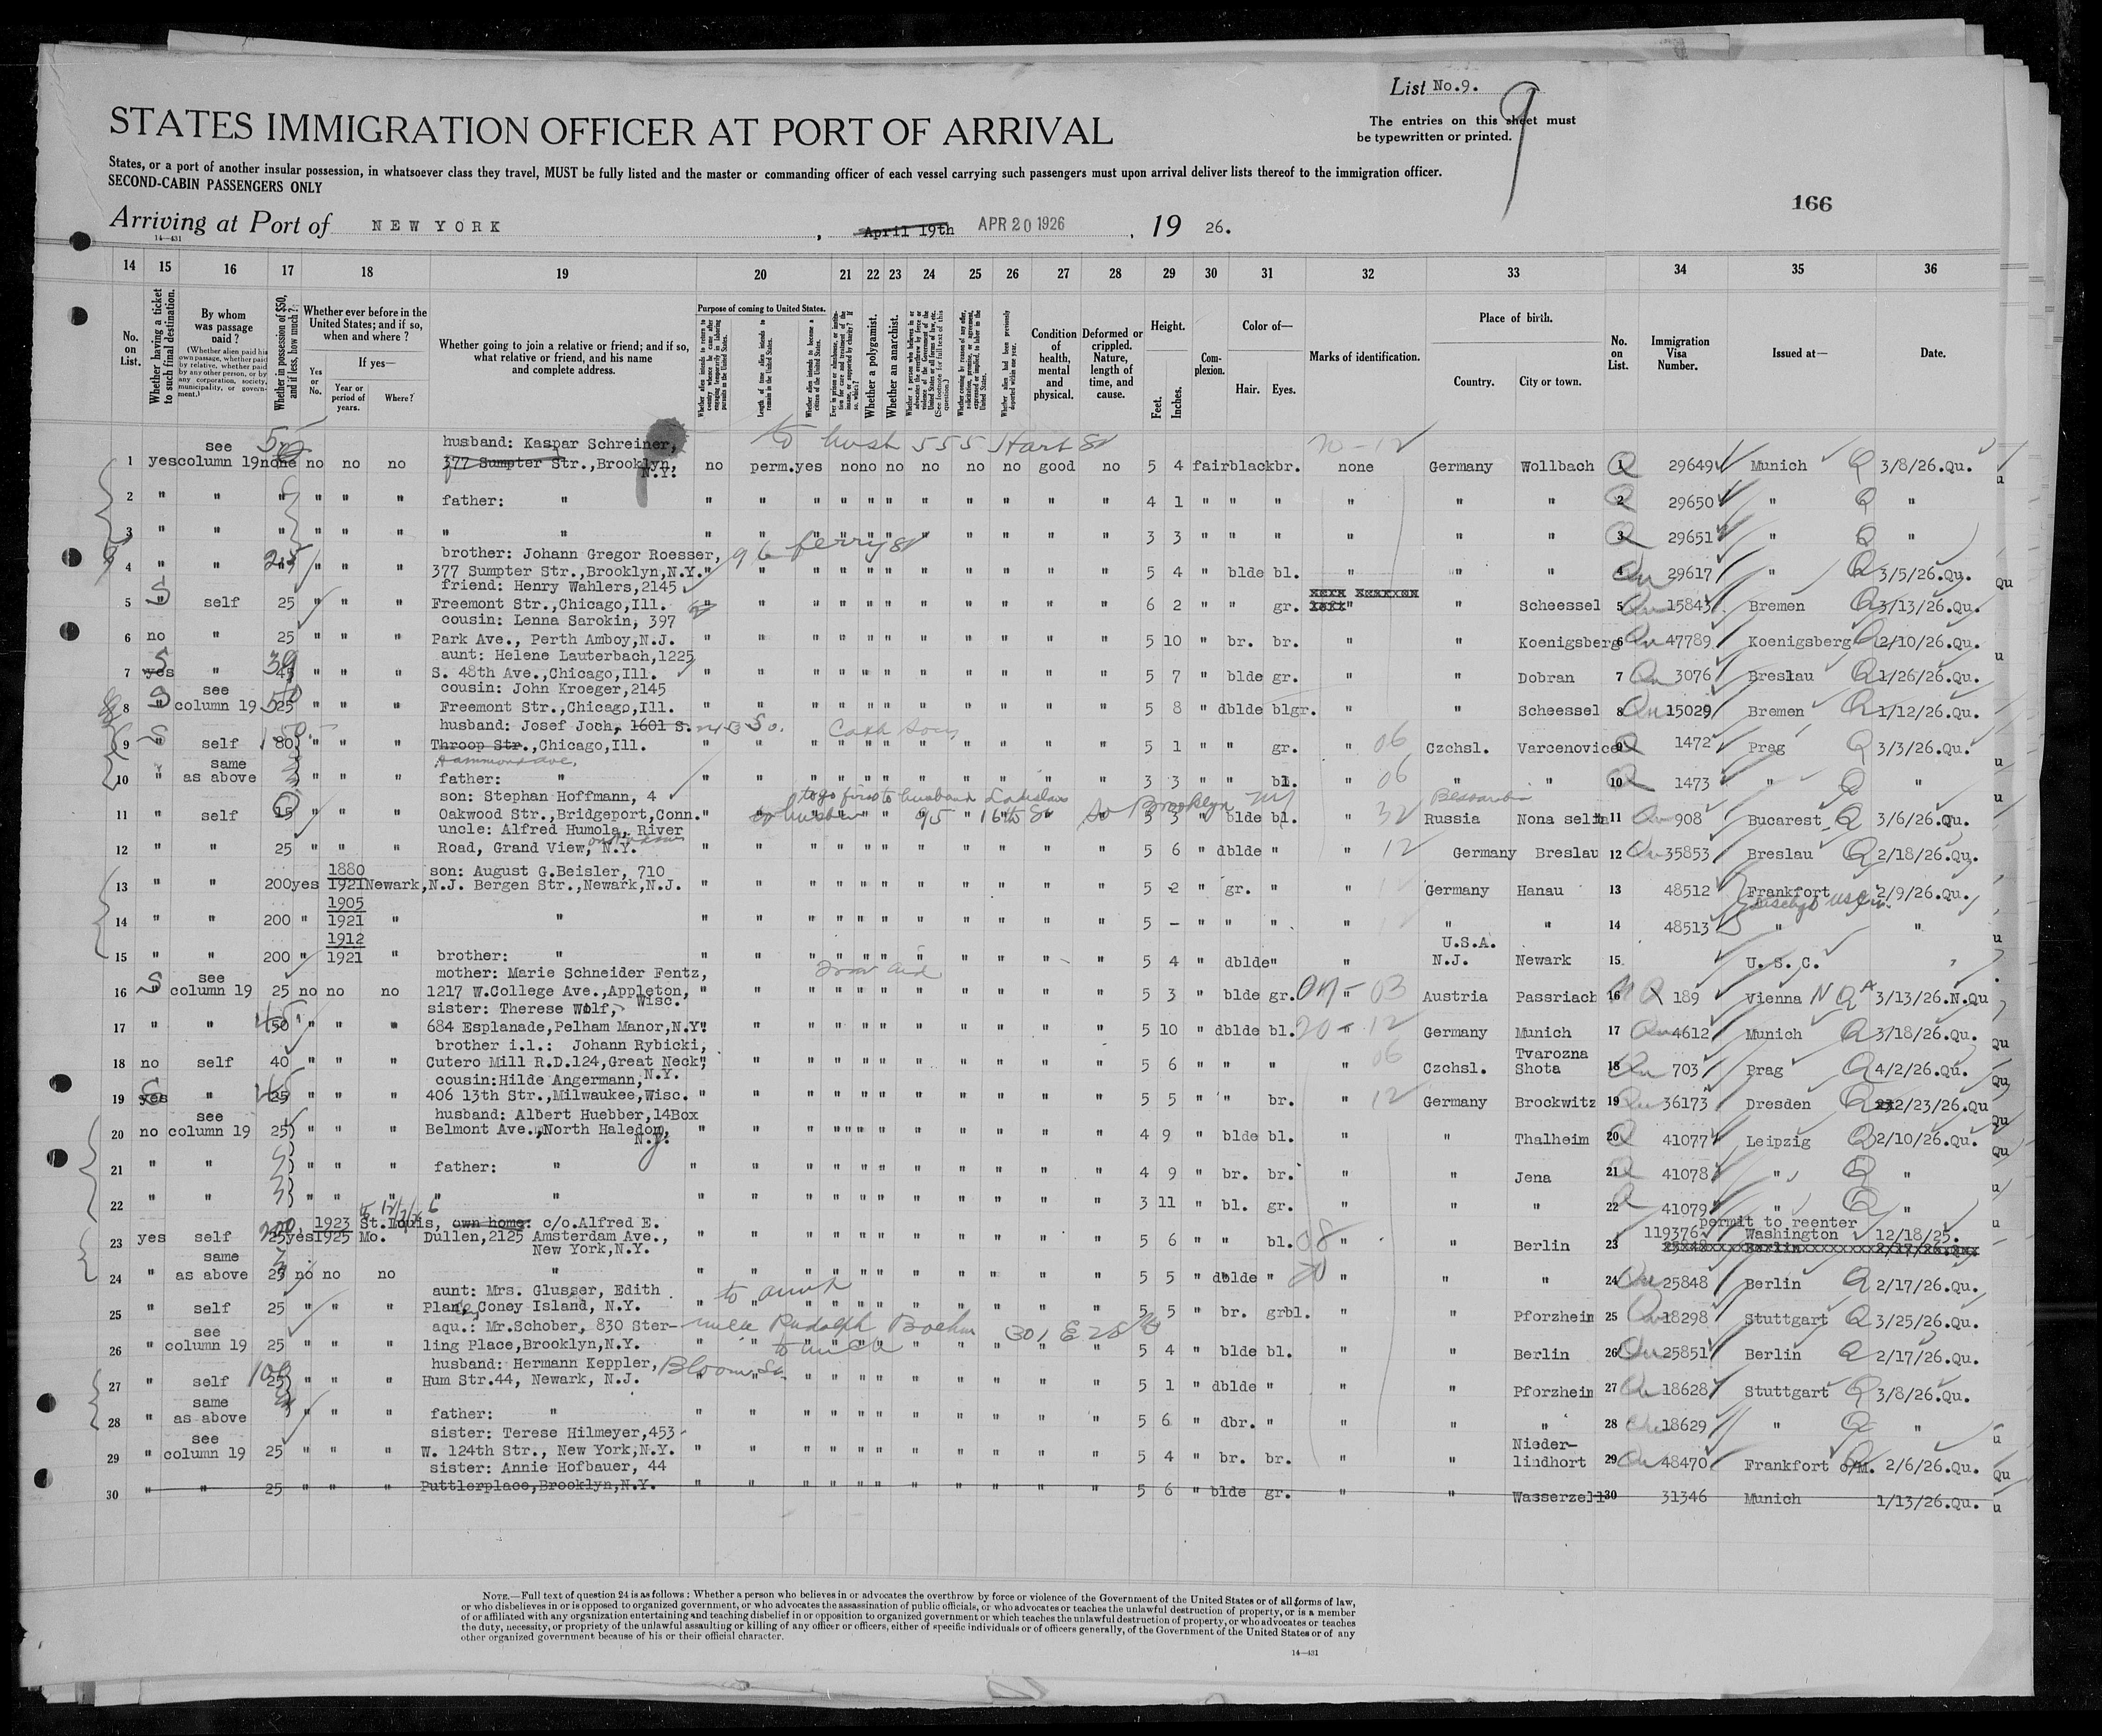 List No.9.
9
STATES IMMIGRATION OFFICER AT PORT OF ARRIVAL
The entries on this sheet must
be typewritten or printed.
States, or a port of another insular possession, in whatsoever class they travel, MUST be fully listed and the master or commanding officer of each vessel carrying such passengers must upon arrival deliver lists thereof to the immigration officer.
SECOND-CABIN PASSENGERS ONLY
166
Arriving at Port of NEW YORK , April 19th APR 20 1926 , 19 26.
14—431
14 15 16 17 18 19 20 21 22 23 24 25 26 27 28 29 30 31 32 33 34 35 36
No. on List.
Whether having a ticket to such final destination.
By whom was passage paid?
(Whether alien paid his own passage, whether paid by relative, whether paid by any other person, or by any corporation, society, municipality, or government.)
Whether in possession of $50, and if less, how much?
Whether ever before in the United States; and if so, when and where?
If yes—
Yes or No.
Year or period of years.
Where?
Whether going to join a relative or friend; and if so, what relative or friend, and his name and complete address.
Purpose of coming to United States.
Whether alien intends to return to country whence he came after engaging temporarily in laboring pursuits in the United States.
Length of time alien intends to remain in the United States.
Whether alien intends to become a citizen of the United States.
Whether a polygamist.
Whether an anarchist.
Condition of health, mental and physical.
Deformed or crippled. Nature, length of time, and cause.
Height.
Feet. Inches.
Complexion.
Color of—
Hair. Eyes.
Marks of identification.
Place of birth.
Country. City or town.
No. on List.
Immigration Visa Number.
Issued at—
Date.
see husband: Kaspar Schreiner, to husb 555 Hart St
1 yes column 19 none no no no 377 Sumpter Str.,Brooklyn, N.Y. no perm. yes no no no no no no good no 5 4 fair black br. none Germany Wollbach 1 29649 Munich 3/8/26.Qu.
2 " " " " " " father: " " " " " " " " " " " " " 4 1 " " " " " " 2 29650 " "
3 " " " " " " " " " " " " " " " " " " " " 3 3 " " " " " " 3 29651 " "
brother: Johann Gregor Roesser, 96 ferry St
4 " " " " " 377 Sumpter Str.,Brooklyn,N.Y. " " " " " " " " " " " 5 4 " blde bl. " " " 4 29617 " 3/5/26.Qu.
friend: Henry Wahlers,2145
5 " self 25 " " " Freemont Str.,Chicago,Ill. " " " " " " " " " " " 6 2 " " gr. " " Scheessel 5 15843 Bremen 3/13/26.Qu.
cousin: Lenna Sarokin, 397
6 no " 25 " " " Park Ave., Perth Amboy,N.J. " " " " " " " " " " " 5 10 " br. br. " " Koenigsberg 6 47789 Koenigsberg 2/10/26.Qu.
aunt: Helene Lauterbach,1225
7 yes " 45 " " " S. 48th Ave.,Chicago,Ill. " " " " " " " " " " " 5 7 " blde gr. " " Dobran 7 3076 Breslau 1/26/26.Qu.
see cousin: John Kroeger,2145
8 " column 19 25 " " " Freemont Str.,Chicago,Ill. " " " " " " " " " " " 5 8 " dblde blgr. " " Scheessel 8 15029 Bremen 1/12/26.Qu.
husband: Josef Joch, 1601 S.
9 " self 80 " " " Throop Str.,Chicago,Ill. " " " " " " " " " " " 5 1 " " gr. " 06 Czchsl. Varcenovice 9 1472 Prag 3/3/26.Qu.
same
10 " as above " " " father: " " " " " " " " " " " " 3 3 " " bl. " 06 " " 10 1473 " "
son: Stephan Hoffmann, 4 to go first to husband Ladislaw
11 " self 15 " " " Oakwood Str.,Bridgeport,Conn. to husband 95 16th St So Brooklyn NY " blde bl. " 32 Bessarabia Russia Nona selita 11 908 Bucarest 3/6/26.Qu.
uncle: Alfred Humola, River
12 " " 25 " " " Road, Grand View, N.Y. " " " " " " " " " " " 5 6 " dblde " " 12 Germany Breslau 12 35853 Breslau 2/18/26.Qu.
1880 son: August G.Beisler, 710
13 " " 200 yes 1921 Newark,N.J. Bergen Str.,Newark,N.J. " " " " " " " " " " " 5 2 " gr. " " 12 Germany Hanau 13 48512 Frankfort 2/9/26.Qu.
1905
14 " " 200 " 1921 " " " " " " " " " " " " " " 5 - " " " " " " 14 48513 " "
1912 U.S.A.
15 " " 200 " 1921 " brother: " " " " " " " " " " " " 5 4 " dblde " " N.J. Newark 15 U.S.C.
see mother: Marie Schneider Fentz,
16 " column 19 25 no no no 1217 W.College Ave.,Appleton, Wisc. " " " " " " " " " " " 5 3 " blde gr. " 03 Austria Passriach 16 189 Vienna 3/13/26.N.Qu
sister: Therese Wolf,
17 " " 50 " " " 684 Esplanade,Pelham Manor,N.Y. " " " " " " " " " " " 5 10 " dblde bl. 20 - 12 Germany Munich 17 4612 Munich 3/18/26.Qu.
brother i.l.: Johann Rybicki, Tvarozna
18 no self 40 " " " Cutero Mill R.D.124,Great Neck, N.Y. " " " " " " " " " " " 5 6 " " " " 06 Czchsl. Shota 18 703 Prag 4/2/26.Qu.
cousin:Hilde Angermann,
19 yes " 25 " " " 406 13th Str.,Milwaukee,Wisc. " " " " " " " " " " " 5 5 " " br. " 12 Germany Brockwitz 19 36173 Dresden 2/23/26.Qu
see husband: Albert Huebber,14Box
20 no column 19 25 " " " Belmont Ave.,North Haledon, N.J. " " " " " " " " " " " 4 9 " blde bl. " " Thalheim 20 41077 Leipzig 2/10/26.Qu.
21 " " " " " father: " " " " " " " " " " " " 4 9 " br. br. " " Jena 21 41078 " "
22 " " " " " " " " " " " " " " " " " " 3 11 " bl. gr. " " " 22 41079 " "
1923 St.Louis, own home: c/o.Alfred E. permit to reenter
23 yes self 25 yes 1925 Mo. Dullen,2125 Amsterdam Ave., " " " " " " " " " " " 5 6 " " bl. 08 " " Berlin 23 119376 Washington 12/18/25.
same New York,N.Y.
24 " as above 25 no no no " " " " " " " " " " " " 5 5 " dblde " " " " 24 25848 Berlin 2/17/26.Qu.
aunt: Mrs. Glusser, Edith to aunt
25 " self 25 " " " Coney Island, N.Y. " " " " " " " " " " " 5 5 " br. grbl. " " Pforzheim 25 18298 Stuttgart 3/25/26.Qu.
see aqu.: Mr.Schober, 830 Ster- uncle Rudolph Boehm 301 E 28
26 " column 19 25 " " " ling Place,Brooklyn,N.Y. to uncle 5 4 " blde bl. " " Berlin 26 25851 Berlin 2/17/26.Qu.
husband: Hermann Keppler, Bloom
27 " self 25 " " " Hum Str.44, Newark, N.J. " " " " " " " " " " " 5 1 " dblde " " " Pforzheim 27 18628 Stuttgart 3/8/26.Qu.
same
28 " as above " " " father: " " " " " " " " " " " " 5 6 " dbr. " " " " 28 18629 " "
see sister: Terese Hilmeyer,453 Nieder-
29 " column 19 25 " " " W. 124th Str., New York,N.Y. " " " " " " " " " " " 5 4 " br. br. " " lindhort 29 48470 Frankfort o/M. 2/6/26.Qu.
sister: Annie Hofbauer, 44
30 " " 25 " " " Puttlerplace,Brooklyn,N.Y. " " " " " " " " " " " 5 6 " blde gr. " " Wasserzell 30 31346 Munich 1/13/26.Qu.
NOTE.—Full text of question 24 is as follows: Whether a person who believes in or advocates the overthrow by force or violence of the Government of the United States or of all forms of law,
or who disbelieves in or is opposed to organized government, or who advocates the assassination of public officials, or who advocates or teaches the unlawful destruction of property, or is a member
of or affiliated with any organization entertaining and teaching disbelief in or opposition to organized government or which teaches the unlawful destruction of property, or who advocates or teaches
the duty, necessity, or propriety of the unlawful assaulting or killing of any officer or officers, either of specific individuals or of officers generally, of the Government of the United States or of any
other organized government because of his or their official character.
14—431